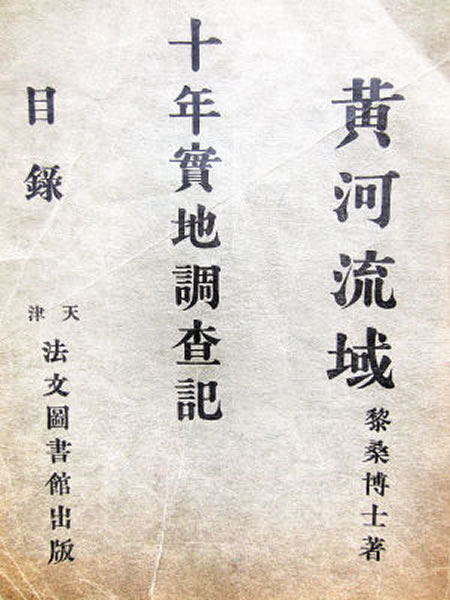 黃河流域
黎桑博士著
十年實地調查記
目錄
天津
法文圖書館出版